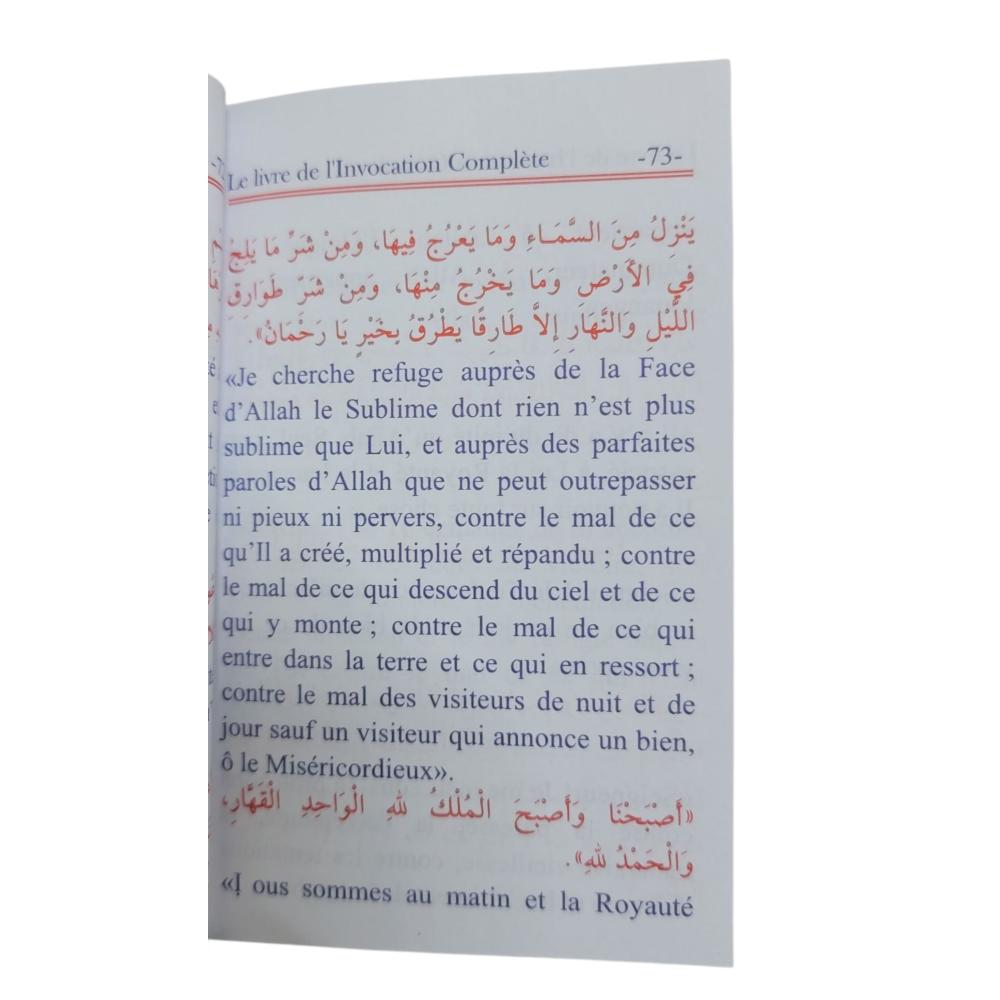 Le livre de l'Invocation Complète -73-
يَنْزِلُ مِنَ السَّمَاءِ وَمَا يَعْرُجُ فِيهَا، وَمِنْ شَرِّ مَا يَلِجُ
فِي الأَرْضِ وَمَا يَخْرُجُ مِنْهَا، وَمِنْ شَرِّ طَوَارِقِ
اللَّيْلِ وَالنَّهَارِ إِلاَّ طَارِقًا يَطْرُقُ بِخَيْرٍ يَا رَحْمَانُ».
«Je cherche refuge auprès de la Face
d’Allah le Sublime dont rien n’est plus
sublime que Lui, et auprès des parfaites
paroles d’Allah que ne peut outrepasser
ni pieux ni pervers, contre le mal de ce
qu’Il a créé, multiplié et répandu ; contre
le mal de ce qui descend du ciel et de ce
qui y monte ; contre le mal de ce qui
entre dans la terre et ce qui en ressort ;
contre le mal des visiteurs de nuit et de
jour sauf un visiteur qui annonce un bien,
ô le Miséricordieux».
«أَصْبَحْنَا وَأَصْبَحَ الْمُلْكُ لِلَّهِ الْوَاحِدِ الْقَهَّارِ،
وَالْحَمْدُ لِلَّهِ».
ous sommes au matin et la Royauté